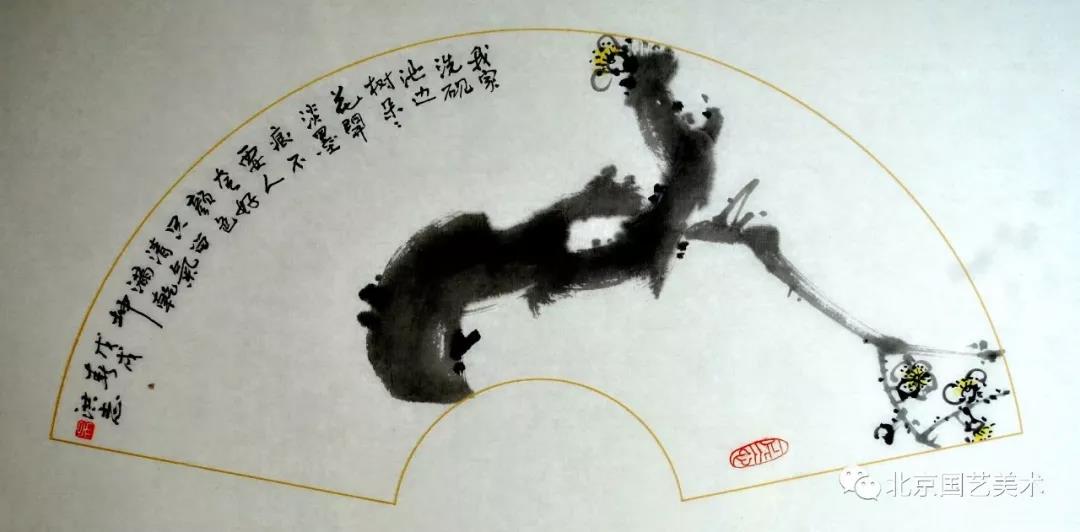 我家
洗砚
池边
树朵々
花開
淡墨
痕不
要人
夸好
颜色
只留
清氣
满乾
坤
戊戌
洪志
北京国艺美术